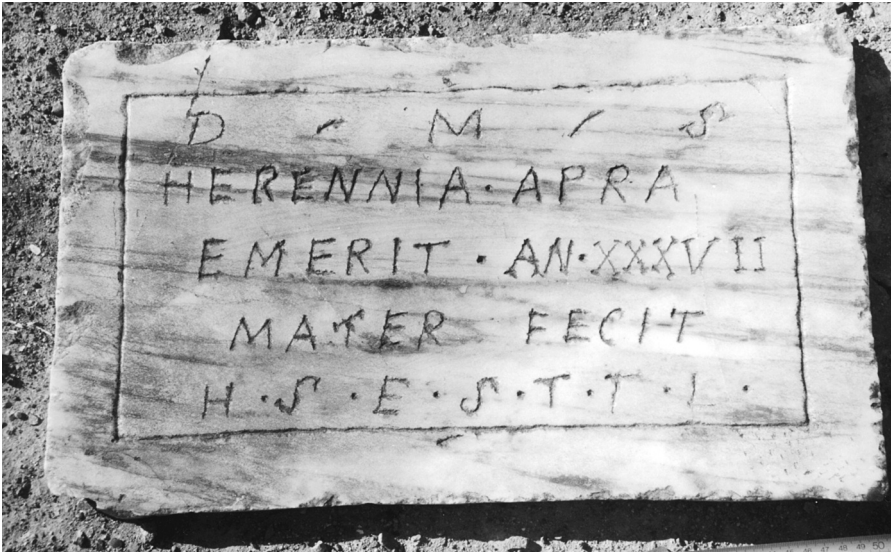 D · M · S
HERENNIA · APRA
EMERIT · AN · XXXVII
MATER FECIT
H · S · E · S · T · T · L ·